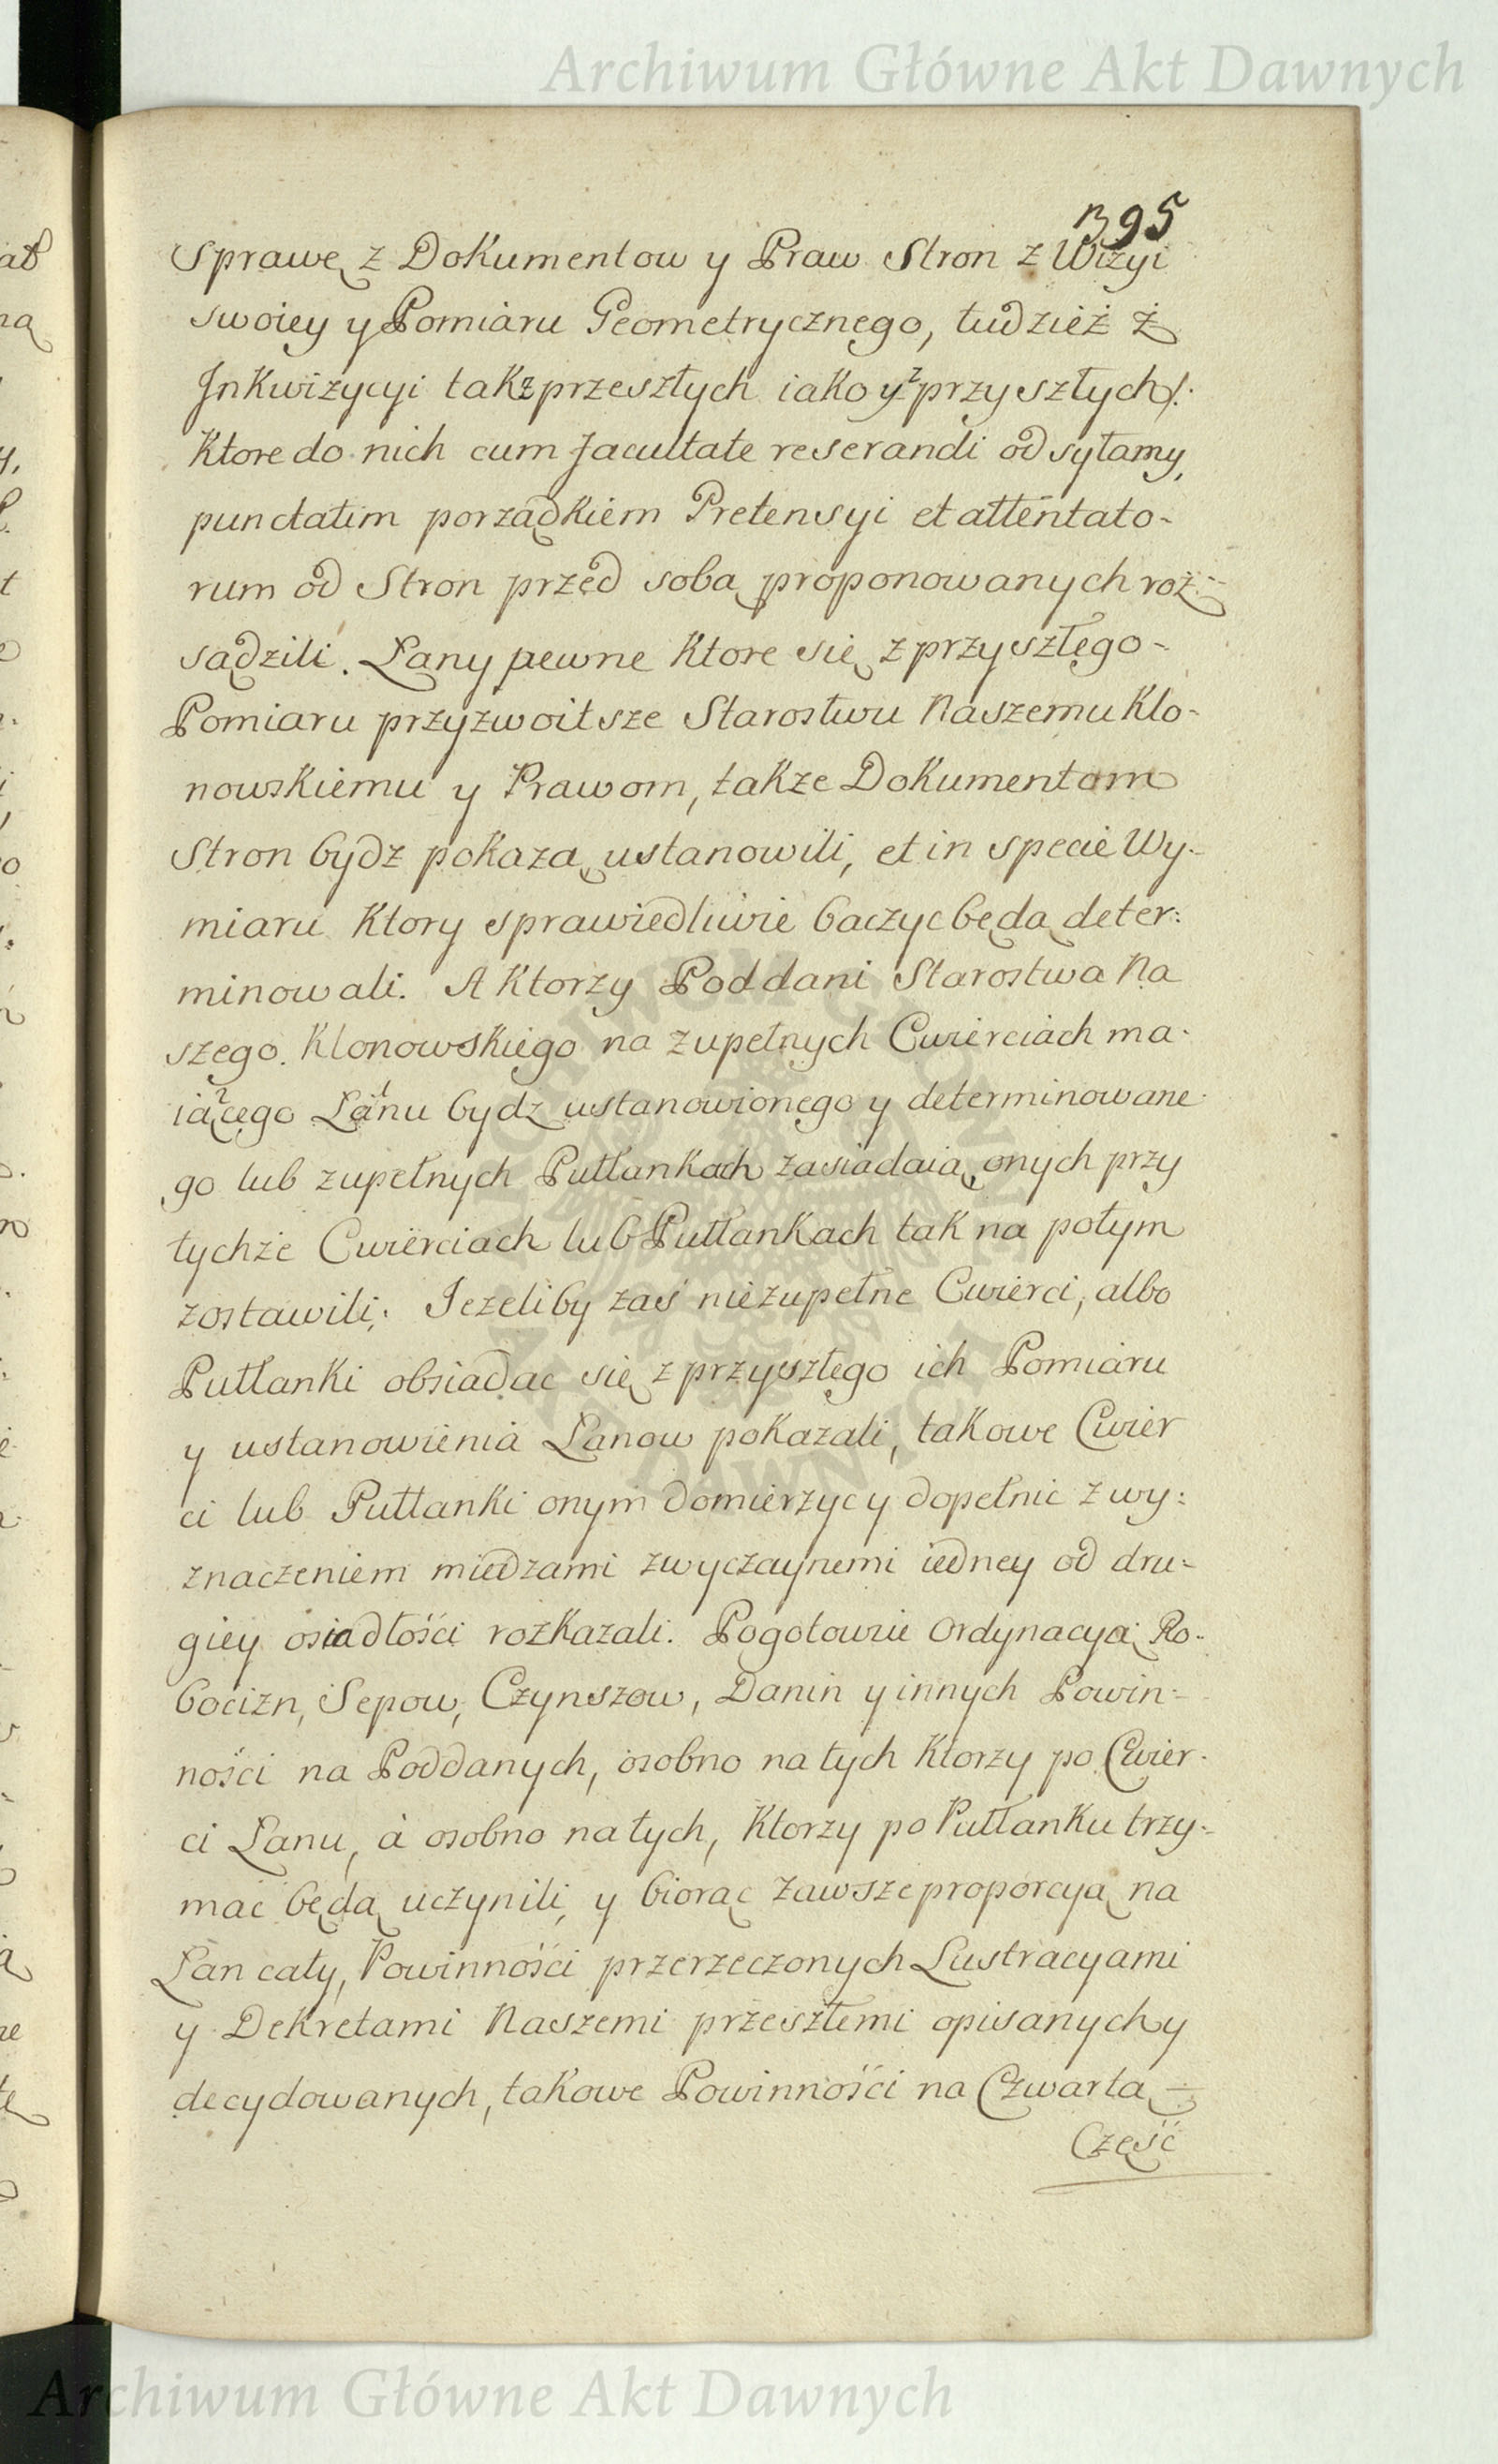 Archiwum Główne Akt Dawnych
395
Sprawę z Dokumentow y Praw Stron z Wizyi
swoiey y Pomiaru Geometrycznego, tudzież ż
Jnkwizycyi tak z przeszłych iako y z przyszłych /:
Ktore do nich cum facultate reserandi odsyłamy,
punctatim porządkiem Pretensyi et attentato-
rum od Stron przed sobą proponowanych roz:
sądzili. Łany pewne Ktore się z przyszłego-
Pomiaru przyzwoitsze Starostwu Naszemu Klo-
nowskiemu y Prawom, takze Dokumentom
Stron bydz pokazą ustanowili, et in specie Wy-
miaru Ktory sprawiedliwie baczyc będą deter:
minowali. A Ktorzy Poddani Starostwa Na
szego Klonowskiego na zupełnych Cwierciach ma-
iącego Łanu bydz ustanowionego y determinowane-
go lub zupełnych Pułłankach zasiadaią, onych przy
tychże Cwierciach lub Pułłankach tak na potym
zostawili; Jezeliby zaś niezupełne Cwierci, albo
Pułłanki obsiadac się z przyszłego ich Pomiaru
y ustanowienia Łanow pokazali, takowe Cwier
ci lub Pułłanki onym domierzyc y dopełnic z wy:
znaczeniem miedzami zwyczaynemi iedney od dru-
giey osiadłości rozkazali. Pogotowiu Ordynacyą Ro-
bocizn, Sepow, Czynszow, Danin y innych Powin-
ności na Poddanych, osobno na tych Ktorzy po Cwier-
ci Łanu, á osobno na tych, Ktorzy po Pułłanku trzy-
mać będą uczynili, y biorąc zawsze proporcyą na
Łan cały, Powinności przerzeczonych Lustracyami
y Dekretami Naszemi przeszłemi opisanych y
decydowanych, takowe Powinności na Czwartą
Część
Archiwum Główne Akt Dawnych